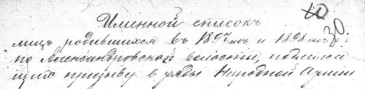 Именной списокъ
лицъ родившихся въ 1897 мъ и 1898 мъ 30.
по Александровской волости, подлежа
щихъ призыву в ряды Народной Армии